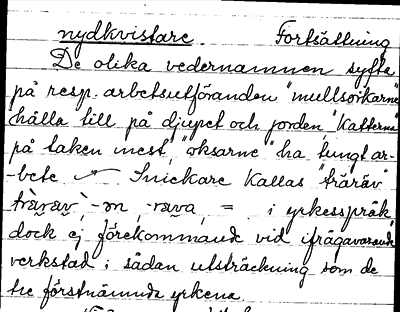 nydkvistare. Fortsättning
De olika vedernamnen syfta
på resp. arbetsutföranden "mullsorkarne"
hålla till på djupet och jorden, "Katterna"
på taken mest, "oksarne" ha tungt ar-
bete Snickare Kallas "träräv"
= i yrkesspråk,
dock ej förekommande vid ifrågavarande
verkstad i sådan utsträckning som de
tre förstnämnda yrkena.